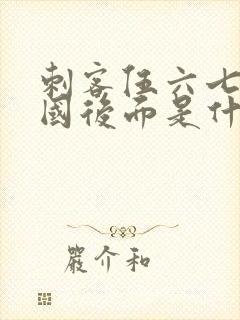 刺客伍六七
國後而是什
嚴介和